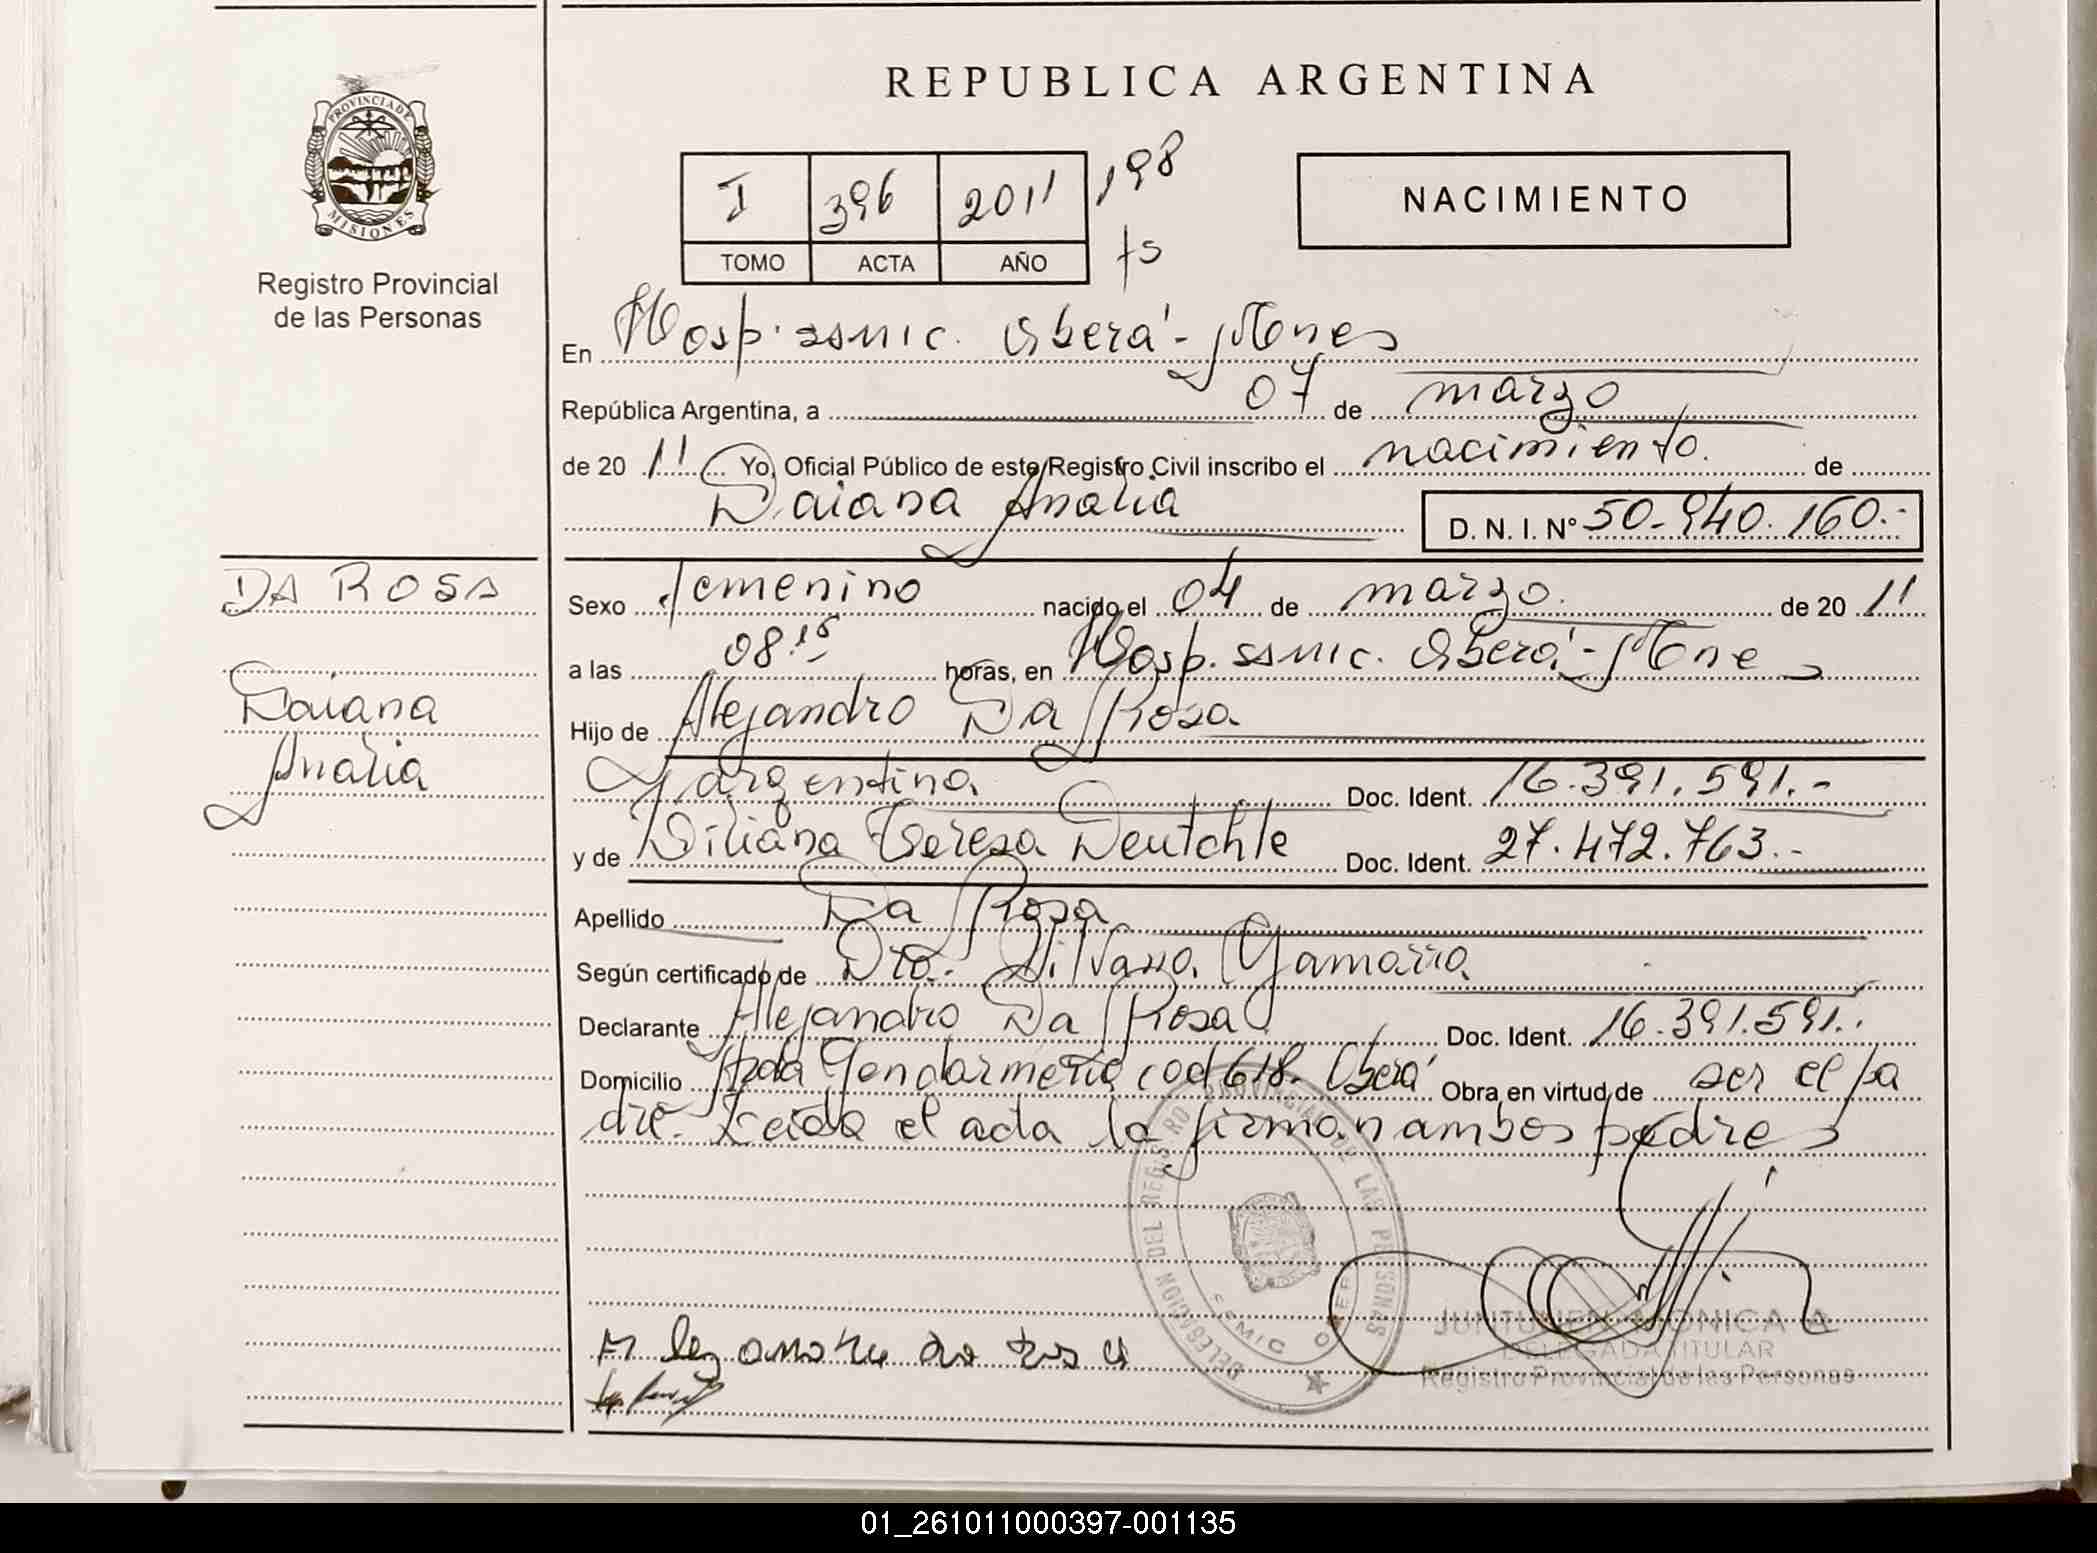 PROVINCIA DE
MISIONES
Registro Provincial
de las Personas
REPUBLICA ARGENTINA
I 396 2011 198
TOMO ACTA AÑO fs
NACIMIENTO
En Hosp. SSMIC. Oberá - Mnes
República Argentina, a 07 de marzo
de 20 11 Yo, Oficial Público de este Registro Civil inscribo el nacimiento. de
Daiana Analia
D. N. I. Nº 50.940.160.-
DA ROSA
Daiana
Analia
Sexo femenino nacido el 04 de marzo. de 20 11
a las 08.15 horas, en Hosp. SSMIC. Oberá - Mnes
Hijo de Alejandro Da Rosa
argentina Doc. Ident. 16.391.591.-
y de Liliana Teresa Deutchle Doc. Ident. 27.472.763.-
Apellido Da Rosa
Según certificado de Dra. Silvana Gamarra
Declarante Alejandro Da Rosa Doc. Ident. 16.391.591.-
Domicilio Avda Gendarmeria cod 618. Oberá Obra en virtud de ser el pa
dre. Leida el acta la firman ambos padres
DELEGACION DEL REGISTRO PROVINCIAL DE LAS PERSONAS
SSMIC OBERA
JUNTUNEN MONICA A
DELEGADA TITULAR
Registro Provincial de las Personas
01_261011000397-001135